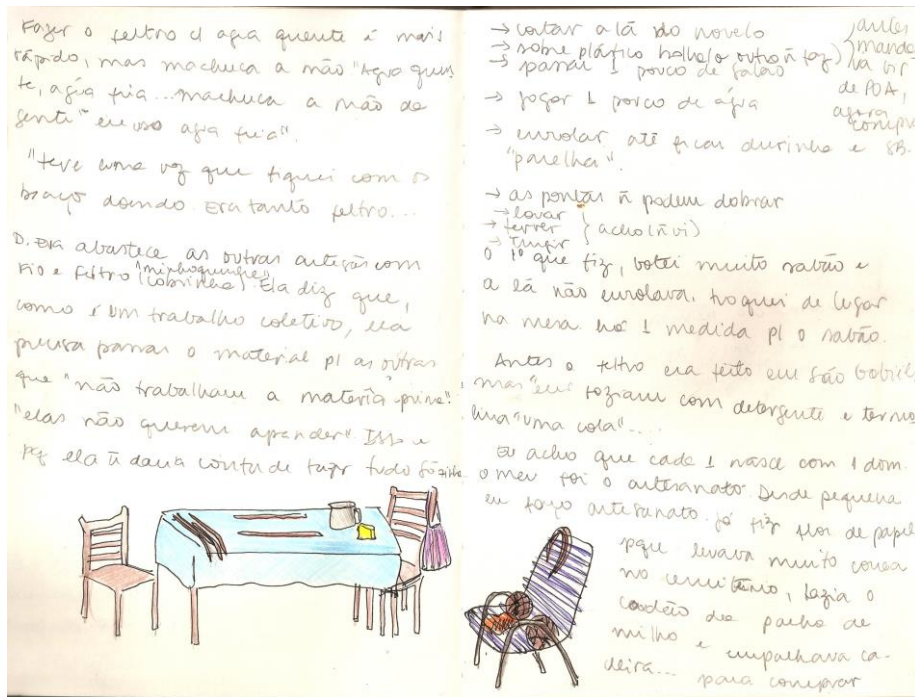 Fazer o feltro c/ agua quente é mais
rápido, mas machuca a mão "Agua quen
te, água fria... machuca a mão da
gente" eu uso agua fria".
"teve uma vez que fiquei com os
braço doendo. Era tanto feltro...
D. Eva abastece as outras artesãs com
fio e feltro "minhoquinha"
(cobrinha). Ela diz que,
como é um trabalho coletivo, ela
precisa passar o material p/ as outras
que "não trabalham a matéria prima".
"elas não querem aprender". Isso é
pq ela ñ dava conta de fazer tudo sózinha
→ cortar a lã do novelo
→ sobre plástico bolha (o outro ñ faz)
→ passar 1 pouco de sabão
→ jogar 1 pouco de água
→ enrolar até ficar durinha e
"parelha".
antes
mandava
vir
de POA,
agora
compra
SB.
→ as pontas ñ podem dobrar
→ lavar
→ ferver
→ tingir
(acho (ñ vi)
O 1º que fiz, botei muito sabão e
a lã não enrolava, troquei de lugar
na mesa. há 1 medida p/ o sabão.
Antes o feltro era feito em São Gabriel,
mas "eles faziam com detergente e termo
lina" uma cola"...
Eu acho que cada 1 nasce com 1 dom.
o meu foi o artesanato. Desde pequena
eu faço artesanato. já fiz flor de papel
pque levava muito coroa
no cemitério, fazia o
cordão da palha de
milho e empalhava ca-
deira... para comprar